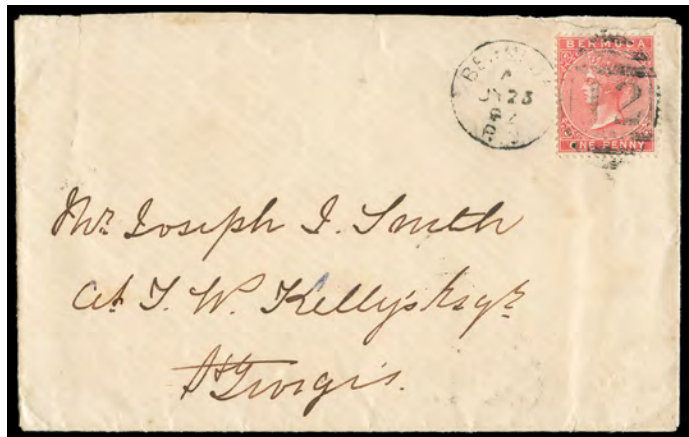 BERMUDA
A
JY 23
2
ONE PENNY
Mr. Joseph I. Smith
At T. W. Kelly's Esqr.
St Georges.